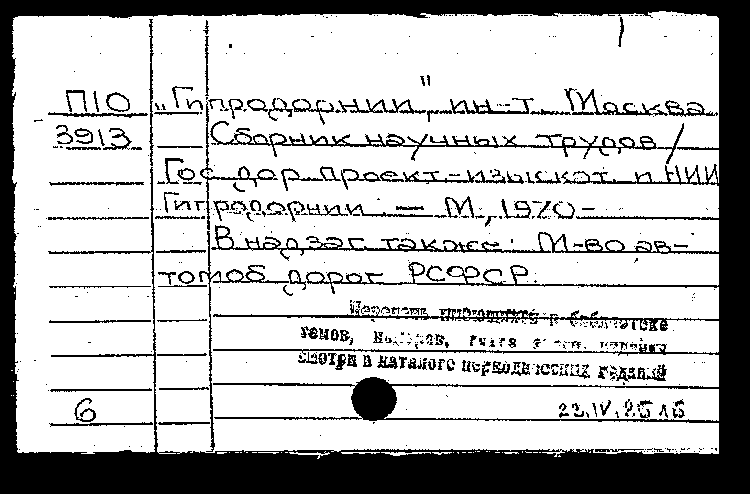 П10 „Гипродорнии", ин-т. Москва
3913 Сборник научных трудов /
Гос. дор. проект.-изыскат. и НИИ
Гипродорнии. — М., 1970-
В надзаг. также: М-во ав-
томоб. дорог РСФСР.
Перечень имеющихся в библиотеке
томов, номеров, года
смотри в каталоге периодических изданий
6